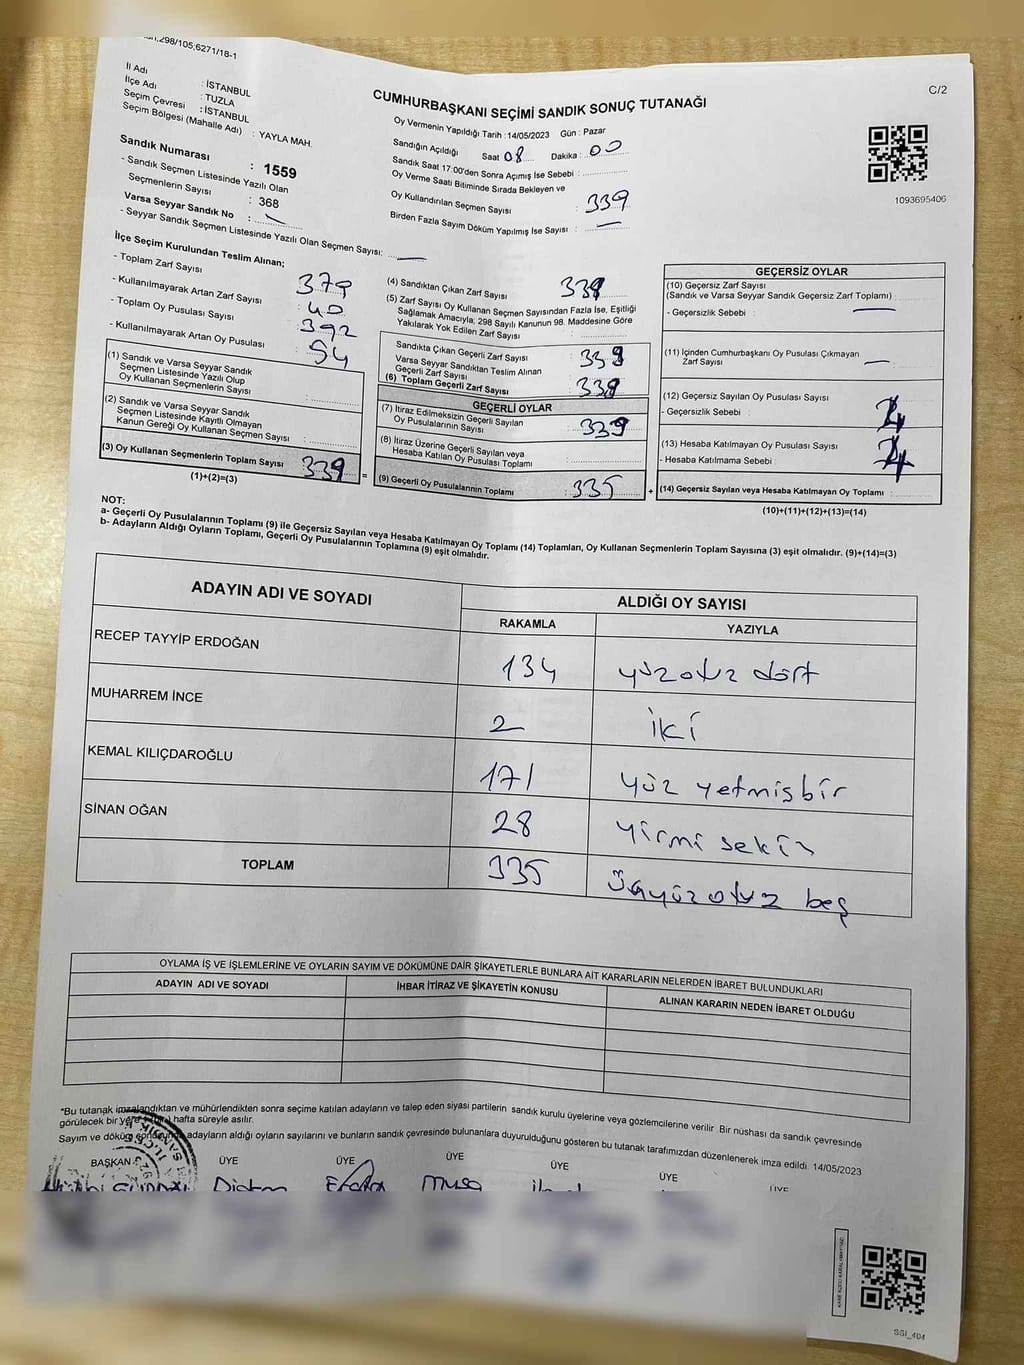 298/105,6271/18-1
C/2
İl Adı : İSTANBUL
İlçe Adı : TUZLA
Seçim Çevresi : İSTANBUL
Seçim Bölgesi (Mahalle Adı) : YAYLA MAH.
Sandık Numarası : 1559
- Sandık Seçmen Listesinde Yazılı Olan
Seçmenlerin Sayısı : 368
Varsa Seyyar Sandık No :
- Seyyar Sandık Seçmen Listesinde Yazılı Olan Seçmen Sayısı:
CUMHURBAŞKANI SEÇİMİ SANDIK SONUÇ TUTANAĞI
Oy Vermenin Yapıldığı Tarih : 14/05/2023 Gün : Pazar
Sandığın Açıldığı Saat 08 Dakika : 00
Sandık Saat 17:00'den Sonra Açımış İse Sebebi :
Oy Verme Saati Bitiminde Sırada Bekleyen ve
Oy Kullandırılan Seçmen Sayısı : 339
Birden Fazla Sayım Döküm Yapılmış İse Sayısı :
1093695406
İlçe Seçim Kurulundan Teslim Alınan;
- Toplam Zarf Sayısı 379
- Kullanılmayarak Artan Zarf Sayısı 40
- Toplam Oy Pusulası Sayısı 392
- Kullanılmayarak Artan Oy Pusulası 54
(1) Sandık ve Varsa Seyyar Sandık
Seçmen Listesinde Yazılı Olup
Oy Kullanan Seçmenlerin Sayısı :
(2) Sandık ve Varsa Seyyar Sandık
Seçmen Listesinde Kayıtlı Olmayan
Kanun Gereği Oy Kullanan Seçmen Sayısı :
(3) Oy Kullanan Seçmenlerin Toplam Sayısı 339 =
(1)+(2)=(3)
(4) Sandıktan Çıkan Zarf Sayısı : 339
(5) Zarf Sayısı Oy Kullanan Seçmen Sayısından Fazla İse, Eşitliği
Sağlamak Amacıyla; 298 Sayılı Kanunun 98. Maddesine Göre
Yakılarak Yok Edilen Zarf Sayısı :
Sandıkta Çıkan Geçerli Zarf Sayısı : 339
Varsa Seyyar Sandıktan Teslim Alınan
Geçerli Zarf Sayısı :
(6) Toplam Geçerli Zarf Sayısı : 339
GEÇERLİ OYLAR
(7) İtiraz Edilmeksizin Geçerli Sayılan
Oy Pusulalarının Sayısı : 339
(8) İtiraz Üzerine Geçerli Sayılan ve
Hesaba Katılan Oy Pusulası Toplamı :
(9) Geçerli Oy Pusulalarının Toplamı : 335 +
GEÇERSİZ OYLAR
(10) Geçersiz Zarf Sayısı
(Sandık ve Varsa Seyyar Sandık Geçersiz Zarf Toplamı)
- Geçersizlik Sebebi :
(11) İçinden Cumhurbaşkanı Oy Pusulası Çıkmayan
Zarf Sayısı :
(12) Geçersiz Sayılan Oy Pusulası Sayısı
- Geçersizlik Sebebi : 4
(13) Hesaba Katılmayan Oy Pusulası Sayısı
- Hesaba Katılmama Sebebi : 4
(14) Geçersiz Sayılan veya Hesaba Katılmayan Oy Toplamı :
(10)+(11)+(12)+(13)=(14)
NOT:
a- Geçerli Oy Pusulalarının Toplamı (9) ile Geçersiz Sayılan veya Hesaba Katılmayan Oy Toplamı (14) Toplamları, Oy Kullanan Seçmenlerin Toplam Sayısına (3) eşit olmalıdır. (9)+(14)=(3)
b- Adayların Aldığı Oyların Toplamı, Geçerli Oy Pusulalarının Toplamına (9) eşit olmalıdır.
ADAYIN ADI VE SOYADI ALDIĞI OY SAYISI
RAKAMLA YAZIYLA
RECEP TAYYİP ERDOĞAN 134 yüzotuz dört
MUHARREM İNCE 2 iki
KEMAL KILIÇDAROĞLU 171 yüz yetmişbir
SİNAN OĞAN 28 yirmi sekiz
TOPLAM 335 üçyüzotuz beş
OYLAMA İŞ VE İŞLEMLERİNE VE OYLARIN SAYIM VE DÖKÜMÜNE DAİR ŞİKAYETLERLE BUNLARA AİT KARARLARIN NELERDEN İBARET BULUNDUKLARI
ADAYIN ADI VE SOYADI İHBAR İTİRAZ VE ŞİKAYETİN KONUSU ALINAN KARARIN NEDEN İBARET OLDUĞU
*Bu tutanak imzalandıktan ve mühürlendikten sonra seçime katılan adayların ve talep eden siyasi partilerin sandık kurulu üyelerine veya gözlemcilerine verilir. Bir nüshası da sandık çevresinde
görülecek bir yere hafta süreyle asılır.
Sayım ve döküm sonucunda adayların aldığı oyların sayılarını ve bunların sandık çevresinde bulunanlara duyurulduğunu gösteren bu tutanak tarafımızdan düzenlenerek imza edildi. 14/05/2023
BAŞKAN ÜYE ÜYE ÜYE ÜYE ÜYE ÜYE
Musa
SSİ_404